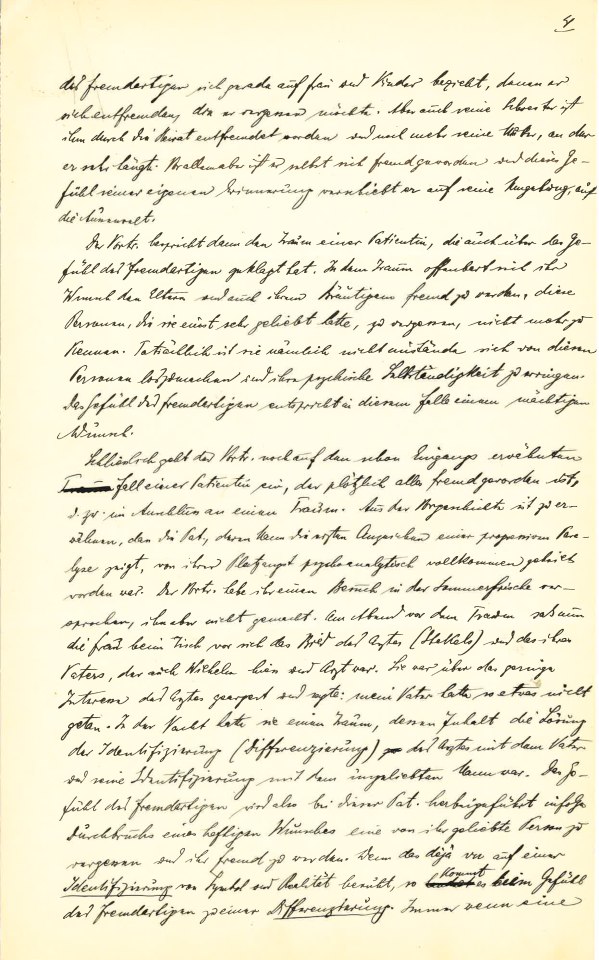 4
des fremdartigen sich gerade auf Frau und Kinder bezieht, denen er
sich entfremden, die er vergessen möchte. Aber auch seine Schwester ist
ihm durch die Heirat entfremdet worden und noch mehr seine Mutter, an der
er sehr hängt. Vor allem aber ist er selbst sich fremd geworden und dieses Ge-
fühl seiner eigenen Erinnerung verschiebt er auf seine Umgebung, auf
die Aussenwelt.
Der Vortr. bespricht dann den Traum einer Patientin, die auch über das Ge-
fühl des Fremdartigen geklagt hat. In dem Traum offenbart sich ihr
Wunsch den Eltern und auch ihrem Bräutigam fremd zu werden, diese
Personen, die sie einst sehr geliebt hatte, zu vergessen, nicht mehr zu
kennen. Tatsächlich ist sie nämlich nicht imstande sich von diesen
Personen loszumachen und ihre psychische Selbständigkeit zu erringen.
Das Gefühl des fremdartigen entspricht in diesem Falle einem mächtigen
Wunsch.
Schliesslich geht der Vortr. noch auf den schon Eingangs erwähnten
Fall einer Patientin ein, der plötzlich alles fremd geworden ist,
u. zw. im Anschluss an einen Traum. Aus der Vorgeschichte ist zu er-
wähnen, dass die Pat., deren Mann die ersten Anzeichen einer progressiven Para-
lyse zeigt, von ihrer Platzangst psychoanalytisch vollkommen geheilt
worden war. Der Vortr. habe ihr einen Besuch in der Sommerfrische ver-
sprochen, ihn aber nicht gemacht. Am Abend vor dem Traum sah nun
die Frau beim Tisch vor sich das Bild des Arztes (Stekels) und das ihres
Vaters, der auch Wilhelm hiess und Arzt war. Sie war über das geringe
Interesse des Arztes geärgert und sagte: mein Vater hätte so etwas nicht
getan. In der Nacht hatte sie einen Traum, dessen Inhalt die Lösung
der Identifizierung (Differenzierung) des Arztes mit dem Vater
und seine Identifizierung mit dem ungeliebten Mann war. Das Ge-
fühl des fremdartigen wird also bei dieser Pat. herbeigeführt infolge
Durchbruchs eines heftigen Wunsches eine von ihr geliebte Person zu
vergessen und ihr fremd zu werden. Wenn das déjà vu auf einer
Identifizierung von Symbol und Realität beruht, so kommt es beim Gefühl
des fremdartigen zu einer Differenzierung. Immer wenn eine